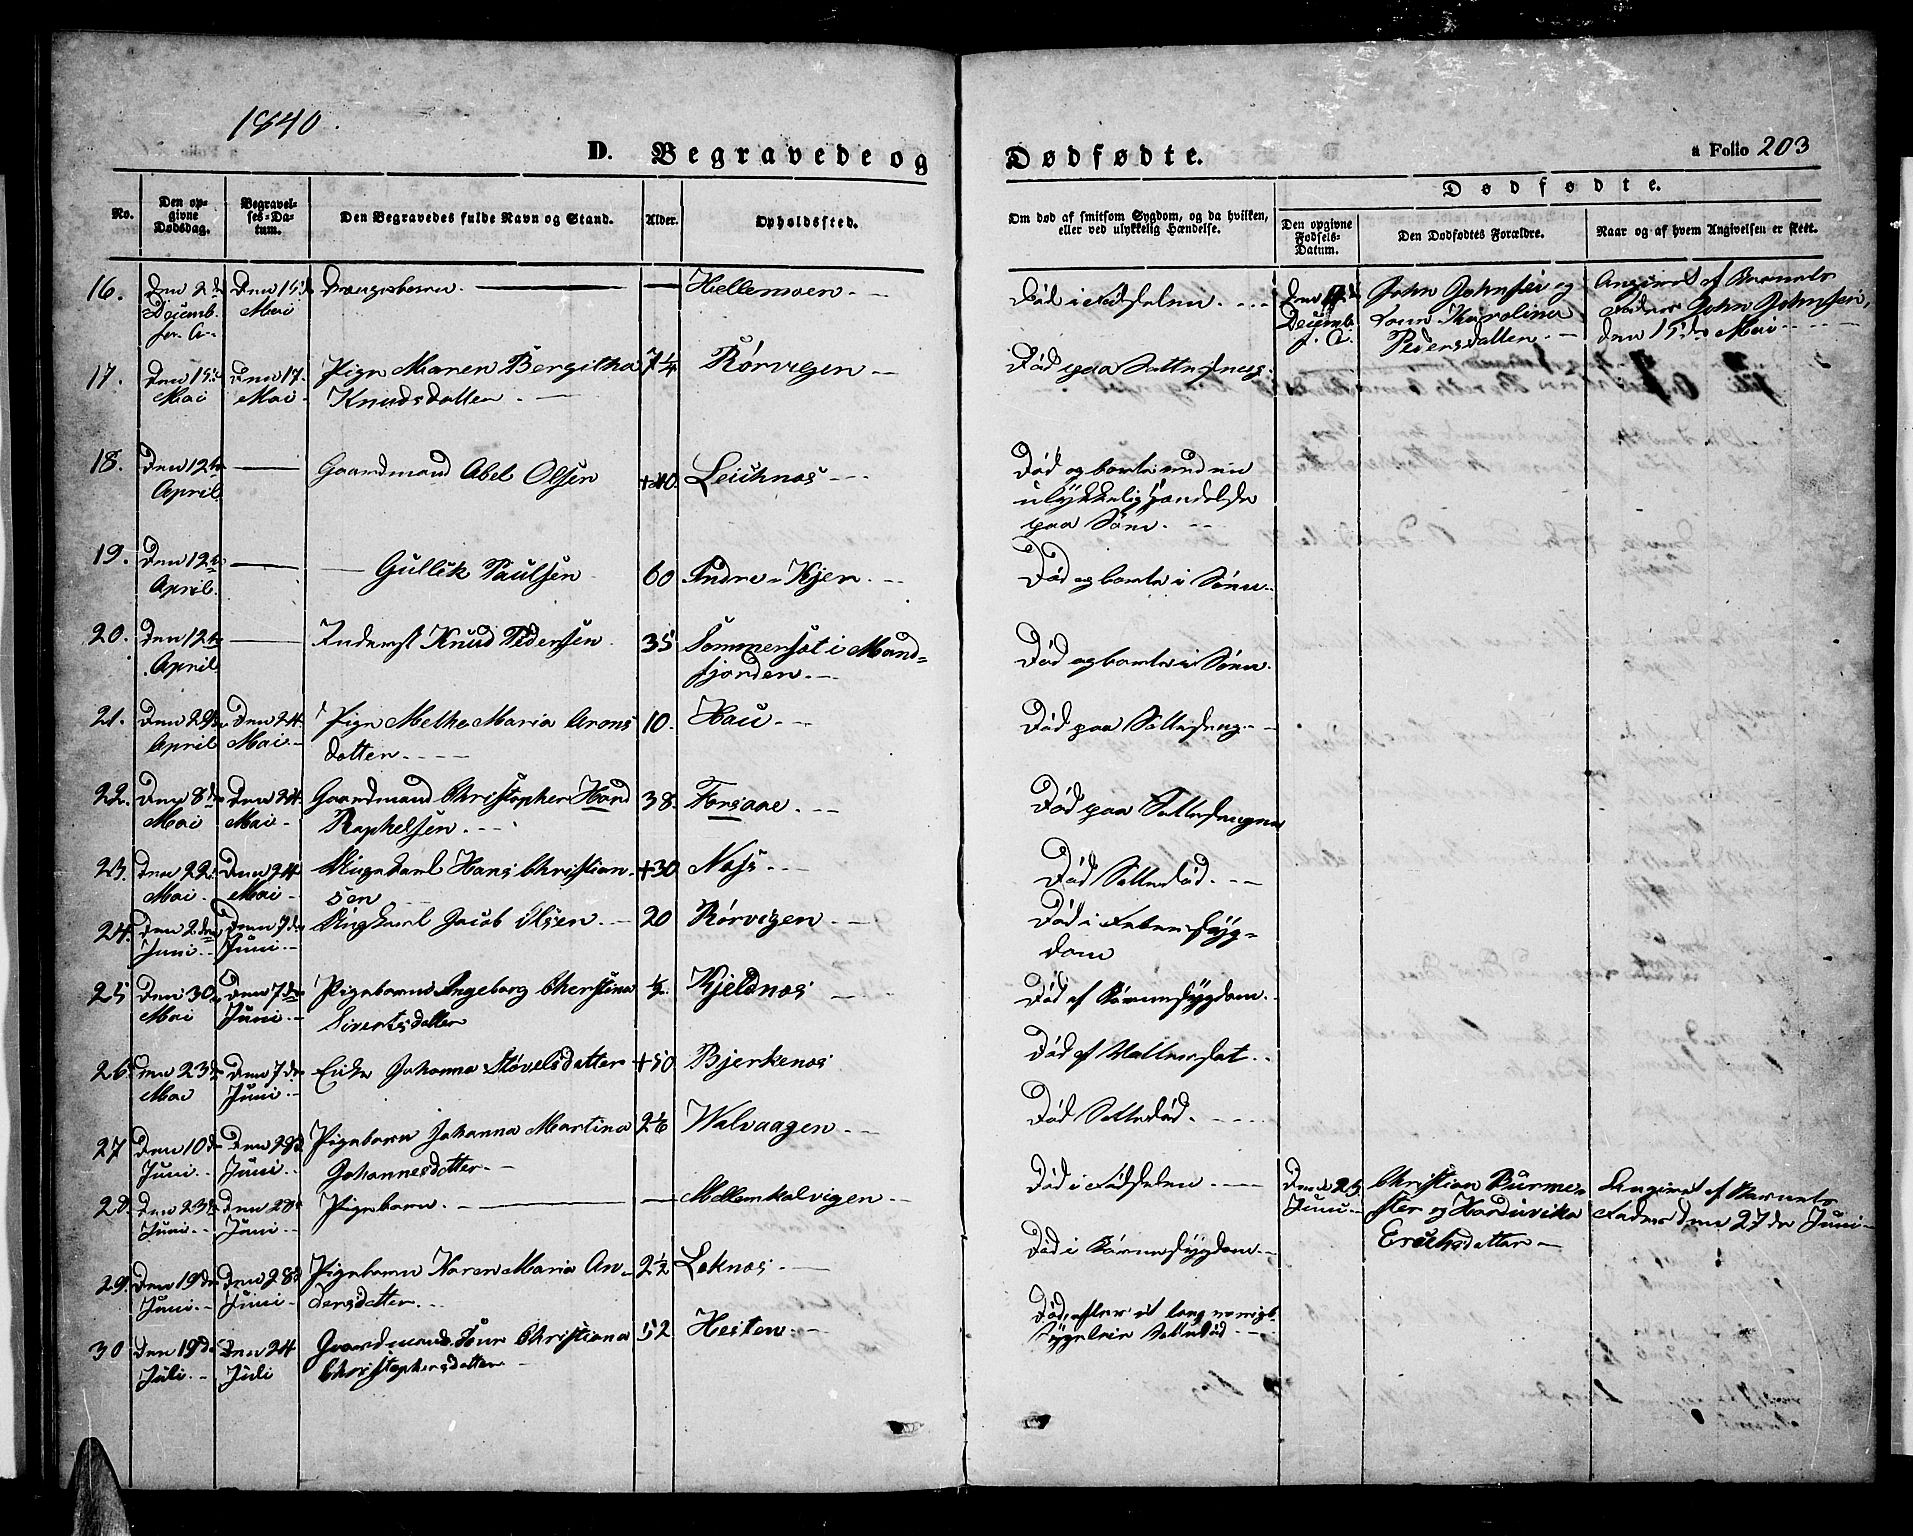 1840.
D. Begravede og Dødfødte.
a Folio 203
No. Den opgivne Dødsdag. Begravelses-Datum. Den Begravedes fulde Navn og Stand. Alder. Opholdssted.
Om død af smitsom Sygdom, og da hvilken, eller ved ulykkelig Hændelse.
Dødfødte.
Den opgivne Fødsels-Datum. Den Dødfødtes Forældre. Naar og af hvem Angivelsen er skeet.
16. Den 2de Decemb. f. A. Den 15de Mai Drengebarn — — Hellemoen Død i Fødselen. Decemb. f. A. John Johnsen og Kone Karolina Pedersdatter Angivet af Barnets Fader John Johnsen, den 15de Mai
17. Den 15de Mai Den 17. Mai Pige Maren Bergitha Knudsdatter 7 1/4 Rørvigen Død paa Sotteseng.
18. Den 12te April — Gaardmand Abel Olsen +40. Leiknes Død og borte ved en ulykkelig Hændelse paa Søen.
19. Den 12te April — — Gullik Paulsen 60 Indre Kjer Død og borte i Søen.
20. Den 12te April — Inderst Knud Pedersen 35 Sommerset i Mandfjorden Død og borte i Søen.
21. Den 29de April Den 24. Mai Pige Methe Maria Arons datter 10. Hau Død paa Sotteseng
22. Den 8de Mai Den 24. Mai Gaardmand Christopher Hard Raphelsen. 38. Forsaae Død paa Sottesengen
23. Den 22. Mai Den 24. Mai Ungkarl Hans Christiansen +30 Næss Død Sottedød.
24. Den 2den Juni Den 7de Juni Ungkarl Jacob Olsen 20 Rørvigen Død i Febersygdom
25 Den 30 Mai Den 7de Juni Pigebarn Ingeborg Cherstina Sivertsdatter 1/2 Kjeldnes Død af Børnesygdom.
26. Den 23de Mai Den 7de Juni Enke Johanna Støvelsdatter +50 Bjerkenes Død af Vattersot.
27 Den 10de Juni Den 28de Juni Pigebarn Johanna Martina Johannesdatter 2 1/6 Valvaagen Død Sottedød.
28. Den 23de Juni Den 28de Juni Pigebarn. — — Mellemkalvigen Død i Fødselen Den 23 Juni Christian Burmester og Hardevika Erichsdatter Angivet af Barnets Fader den 27de Juni
29. Den 19de Juni Den 28de Juni Pigebarn Karen Maria Andersdatter 2 1/2 Leknes Død i Børnesygdom
30 Den 19de Juli Den 24 Juli Gaardmands Kone Christiana Christophersdatter 52 Hesten Død, efter et langvarigt Sygeleie Sottedød